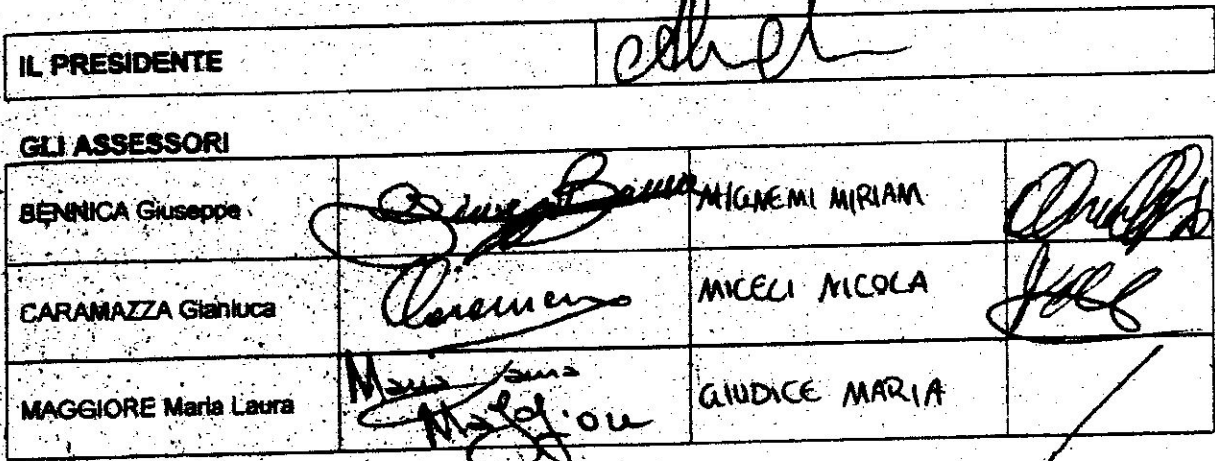 IL PRESIDENTE
GLI ASSESSORI
BENNICA Giuseppe MIGNEMI MIRIAM
CARAMAZZA Gianluca MICELI NICOLA
MAGGIORE Maria Laura Maria Laura Maggiore GIUDICE MARIA